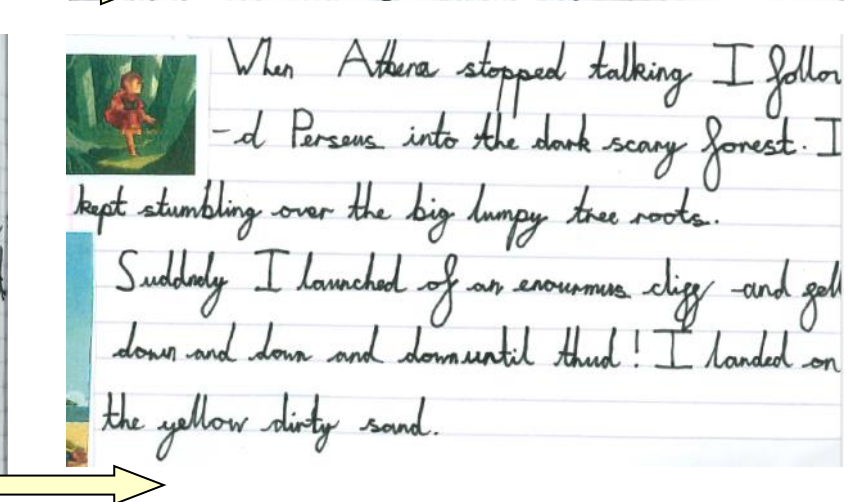 When Athena stopped talking I follow
-d Perseus into the dark scary forest. I
kept stumbling over the big lumpy tree roots.
Suddndy I launched of an enourmus cliff and fell
down and down and down until thud! I landed on
the yellow dirty sand.